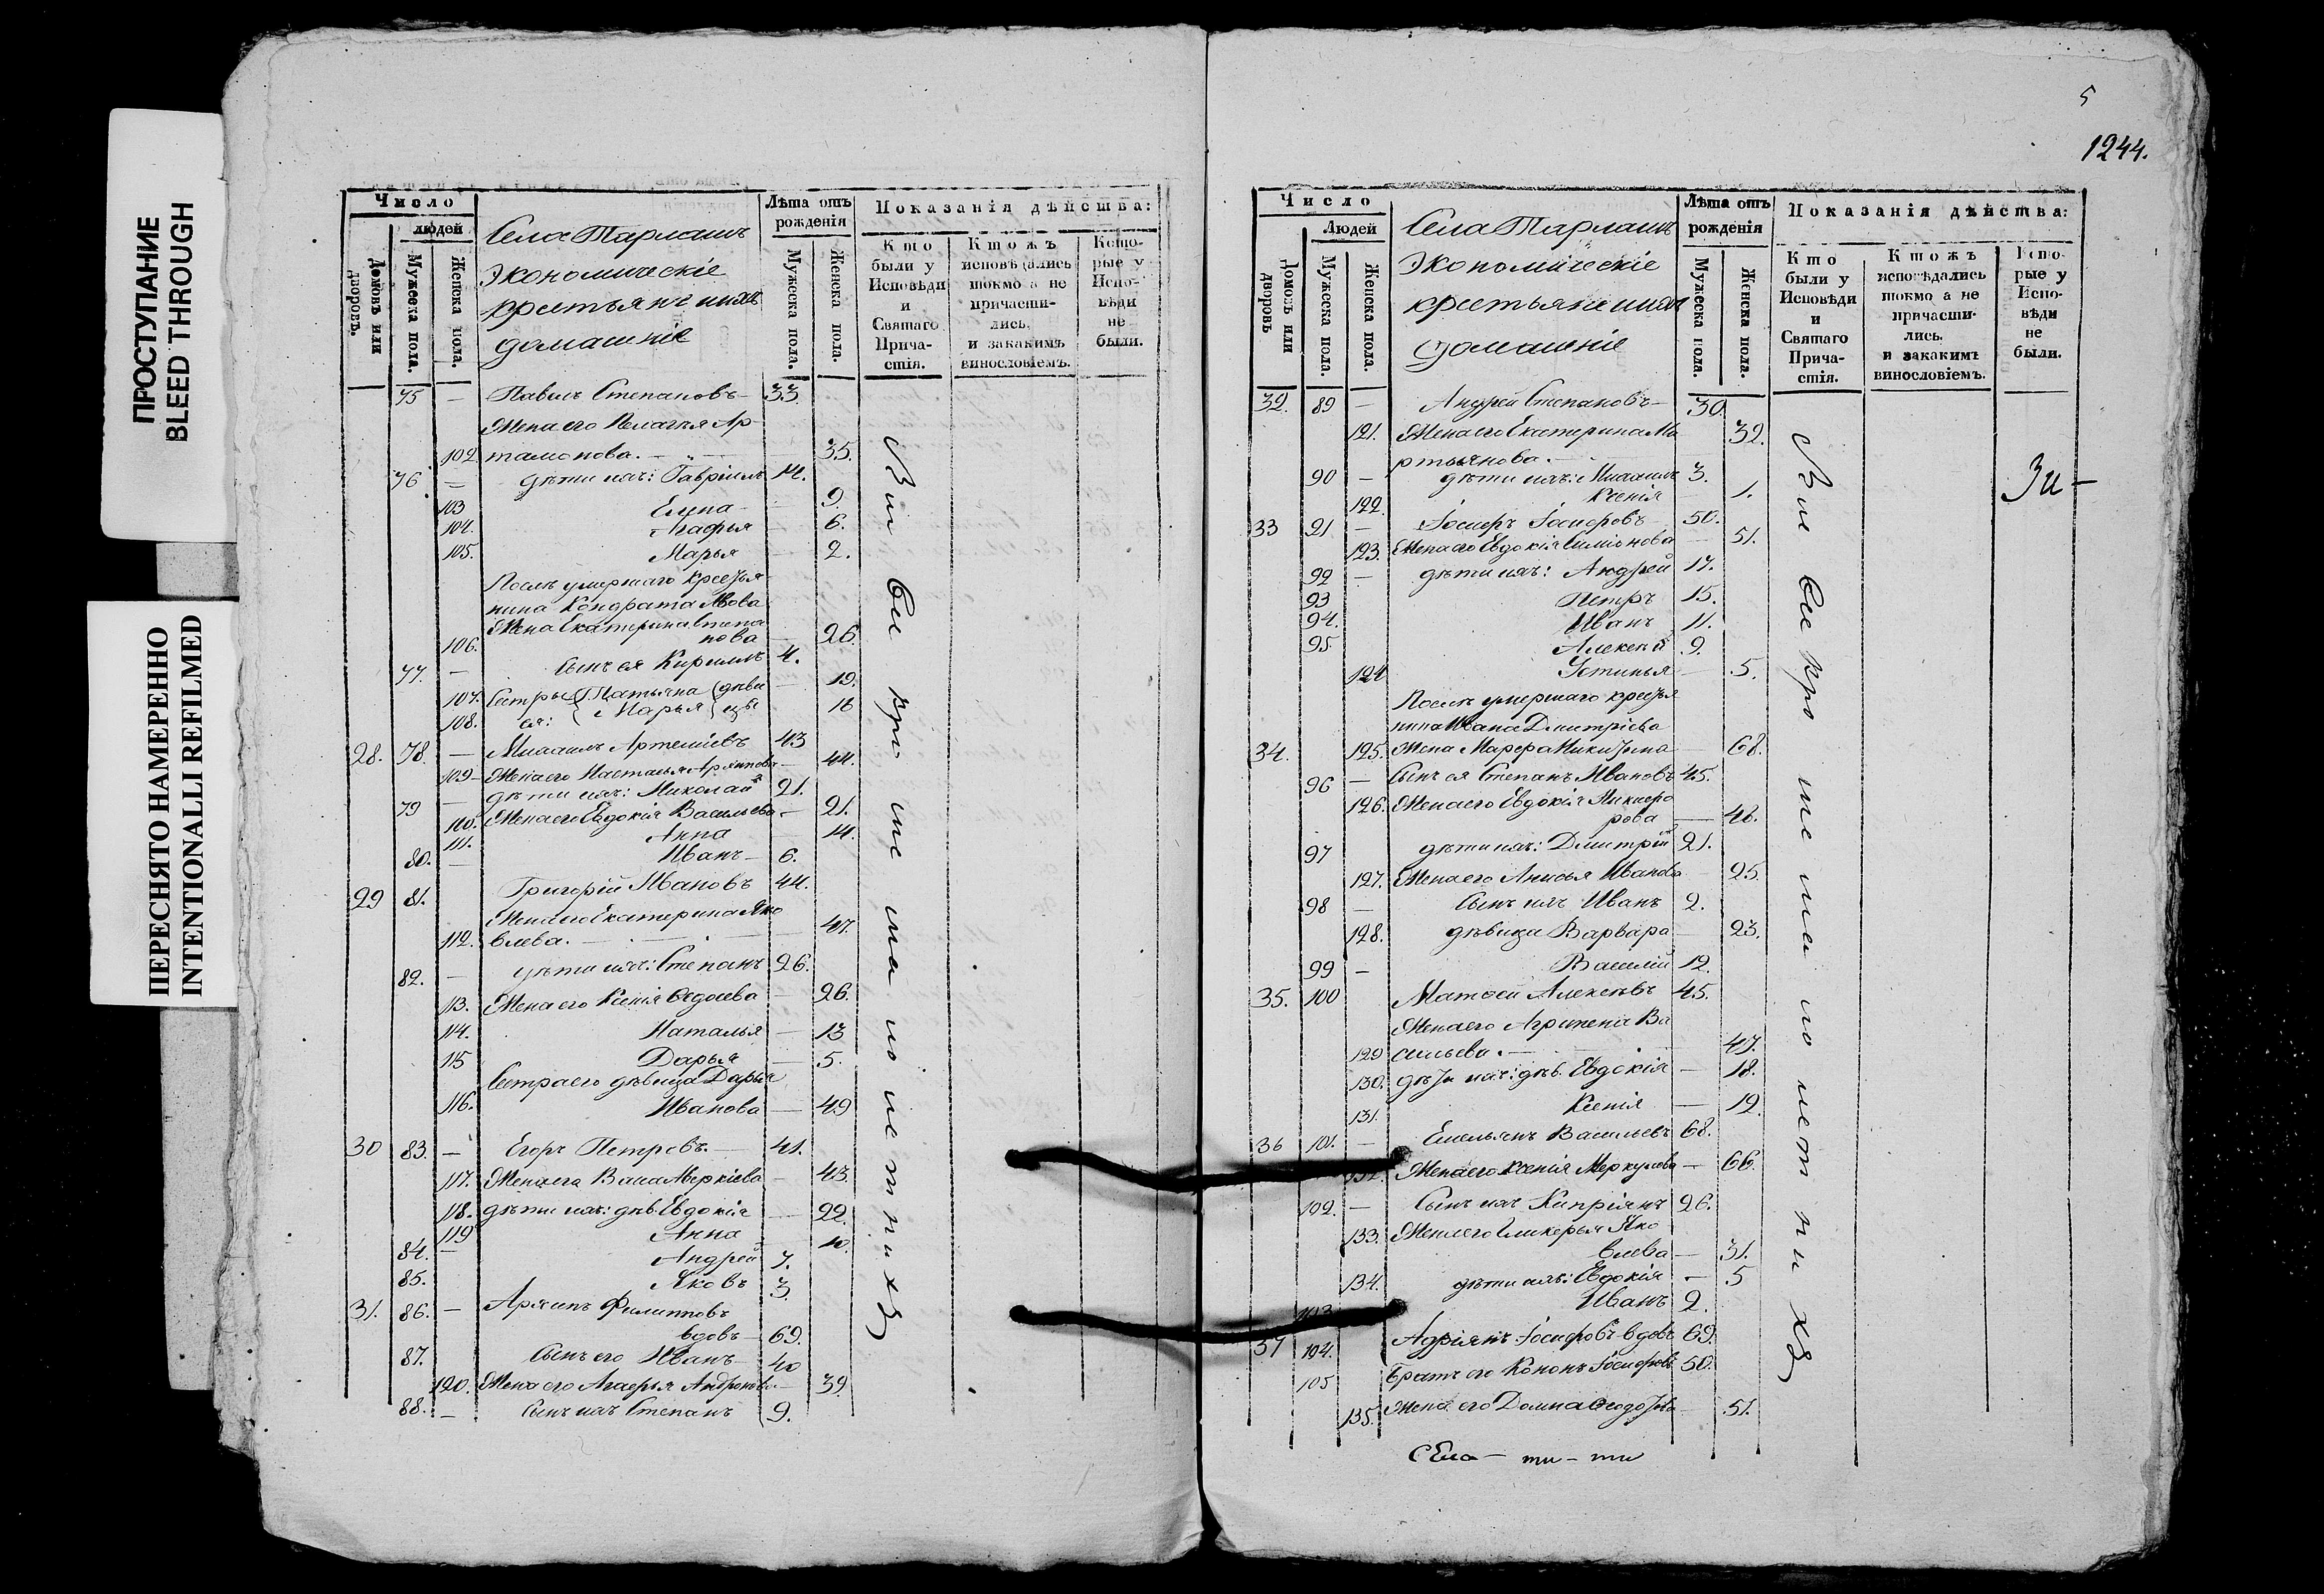 ПРОСТУПАНИЕ
BLEED THROUGH
ПЕРЕСНЯТО НАМЕРЕННО
INTENTIONALLI REFILMED
Число
людей
Домовъ или дворовъ.
Мужеска пола.
Женска пола.
Села Тарлашъ
Экономическіе
крестьяне и ихъ
домашніе
Лѣта отъ рожденія
Мужеска пола.
Женска пола.
Показанія дѣйства:
Кто были у Исповѣди и Святаго Причастія.
Ктожъ исповѣдались токмо а не причастились. и закакимъ винословіемъ.
Которые у Исповѣди не были.
75 — Павелъ Степановъ — 33
Жена его Пелагѣя Ар
102 тамонова. — 35.
76 — дѣти ихъ: Гавріилъ 14.
103 9
104. Агафья — 6.
105. Марья — 2.
Послѣ умершаго крестья
нина Кондрата Львова
Жена Екатерина Степа
106. нова — 26
77. — Сынъ ея Кириллъ 4.
107. Сестры Татьяна (дѣви — 19.
108. ея: Марья цы 16
28. 78. — Михаилъ Артеміевъ 43
109 Жена его Настасья — 44.
79 — дѣти ихъ: Николай 21.
110. Жена его Евдокія Васильева — 21.
111. Анна — 14.
80. — Иванъ — 6.
29 81. Григорій Ивановъ 44.
Жена его Екатерина Яко
112. влева. — 47.
82. — дѣти ихъ: Степанъ 26.
113. Жена его Ксенія Ѳедоева — 26.
114. Наталья — 13
115 Дарья — 5.
Сестра его дѣвица Дарья
116. Иванова — 49
30 83. — Егоръ Петровъ. — 41.
117. Жена его Васа Меркіева — 43.
118. дѣти ихъ: дѣв Евдокія — 22.
119 Анна — 10.
84. — Андрей 7.
85. Яковъ 3.
31. 86. — Архипъ Филипповъ
вдовъ — 69.
87. Сынъ его Иванъ — 40
120. Жена его Агафья Андронова — 39.
88. — Сынъ ихъ Степанъ 9.
5
1244.
Число
Людей
Домовъ или дворовъ
Мужеска пола.
Женска пола.
Села Тарлашъ
Экономическіе
крестьяне и ихъ
домашніе
Лѣта отъ рожденія
Мужеска пола.
Женска пола.
Показанія дѣйства:
Кто были у Исповѣди и Святаго Причастія.
Ктожъ исповѣдались токмо а не причастились. и закакимъ винословіемъ.
Которые у Исповѣди не были.
32. 89 — Андрей Степановъ — 30.
121. Жена его Екатерина Ма 32.
ртьянова.
90 — дѣти ихъ: Михаилъ 3.
122. Ксенія — 1.
33 91 — Іосифъ Іосифовъ 50.
123. Жена его Евдокія Симіонова — 51.
92 — дѣти ихъ: Андрей 17.
93 Петръ 15.
94. Иванъ 11.
95. Алексѣй 9.
124 Устинья — 5.
Послѣ умершаго крестья
нина Ивана Дмитріева
34. 125. Жена Марфа Никитина 68.
96 — Сынъ ея Степанъ Ивановъ 45.
126. Жена его Евдокія Никифо
рова — 48.
97 дѣти ихъ: Дмитрій 21.
127. Жена его Анисья Иванова — 25
98 — Сынъ ихъ Иванъ 2.
128. дѣвица Варвара — 23.
99 — Василій 12.
35. 100 Матѳей Алексѣевъ 45.
Жена его Агрипена Ва
129 сильева. — 47.
130. дѣти ихъ: дѣв. Евдокія — 18.
131. Ксенія — 12
36 101. — Емельянъ Васильевъ 68.
132. Жена его Ксенія Меркулова — 66.
102. — Сынъ ихъ Кипріянъ 26.
133. Жена его Гликерья Яко
влева — 31.
134. дѣти ихъ: Евдокія — 5
103 Иванъ 2.
37 104. Адріянъ Іосифовъ вдовъ 69.
105 Братъ его Кононъ Іосифовъ 50.
135. Жена его Домна — 51.